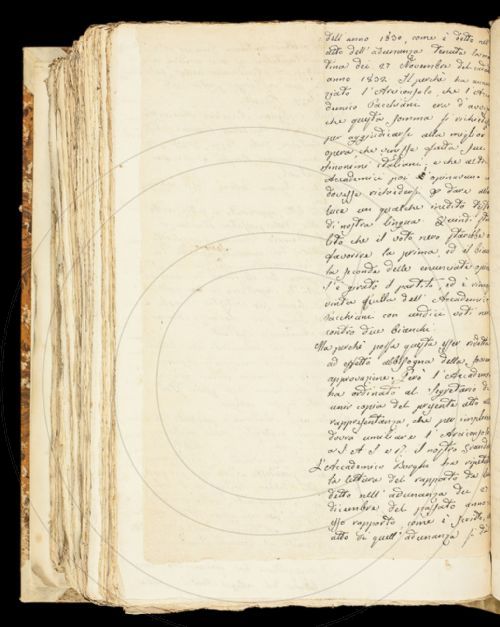 dell'anno 1830, come è detto nel
atto dell'adunanza tenuta la mat
tina dei 27 Novembre del
anno 1832. Il perchè ha
l'Arciconsolo, che l'Acca
demico Sacchiani era d'avvi
che questa somma si
per aggiudicarsi alla miglior
opera che
sinonimi italiani; e che altri
Accademici poi opinavano
dovesse richiedersi p dare alla
luce un qualche inedito testo
di nostra lingua. Quindi sta
lito che il voto nero starebbe a
favorire la prima, ed il bian
la seconda delle enunciate opin
s'è girato il partito, ed è rima
vinta quella dell'Accademico
Sacchiani con undici voti ner
contro due bianchi.
Ma perchè possa questa esser ridotta
ad effetto abbisogna della
approvazione. Però l'Accadem
ha ordinato al Segretario di
unir copia del presente atto alla
rappresentanza, che per
dovrà umiliare l'Arciconsolo
a S. A. I. e R. il nostro Grandu
L'Accademico Borghi ha ripetuto
la lettura del rapporto da
detto nell'adunanza dei
dicembre del passato anno
esso rapporto, come è scritto
atto di quell'adunanza si